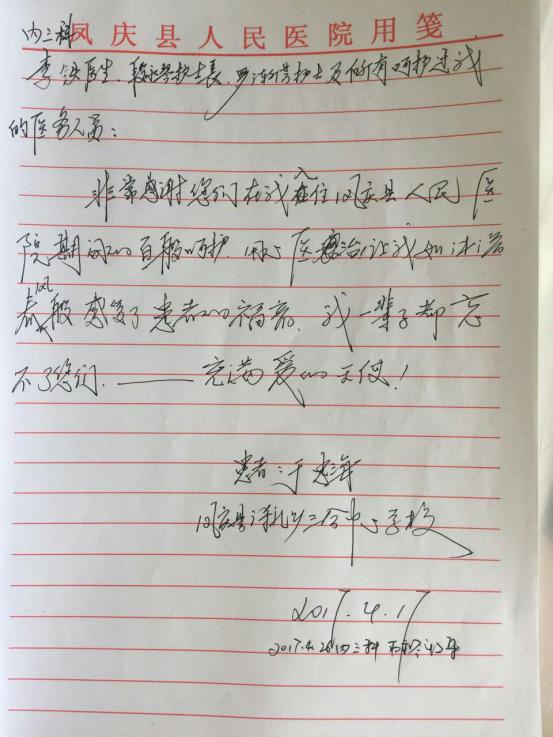 凤庆县人民医院用笺
内三科
李铁医生、段永琴护士长、罗 护士及所有呵护过我
的医务人员：
非常感谢您们在我入住凤庆县人民医
院期间的百般呵护、 医 治让我如沐浴
春风般感受了患者的福音、我一辈子都忘
不了您们.——充满爱的天使！
患者：于忠海
凤庆县诗礼乡三合中心学校
2017.4.17
2017.4.26内三科